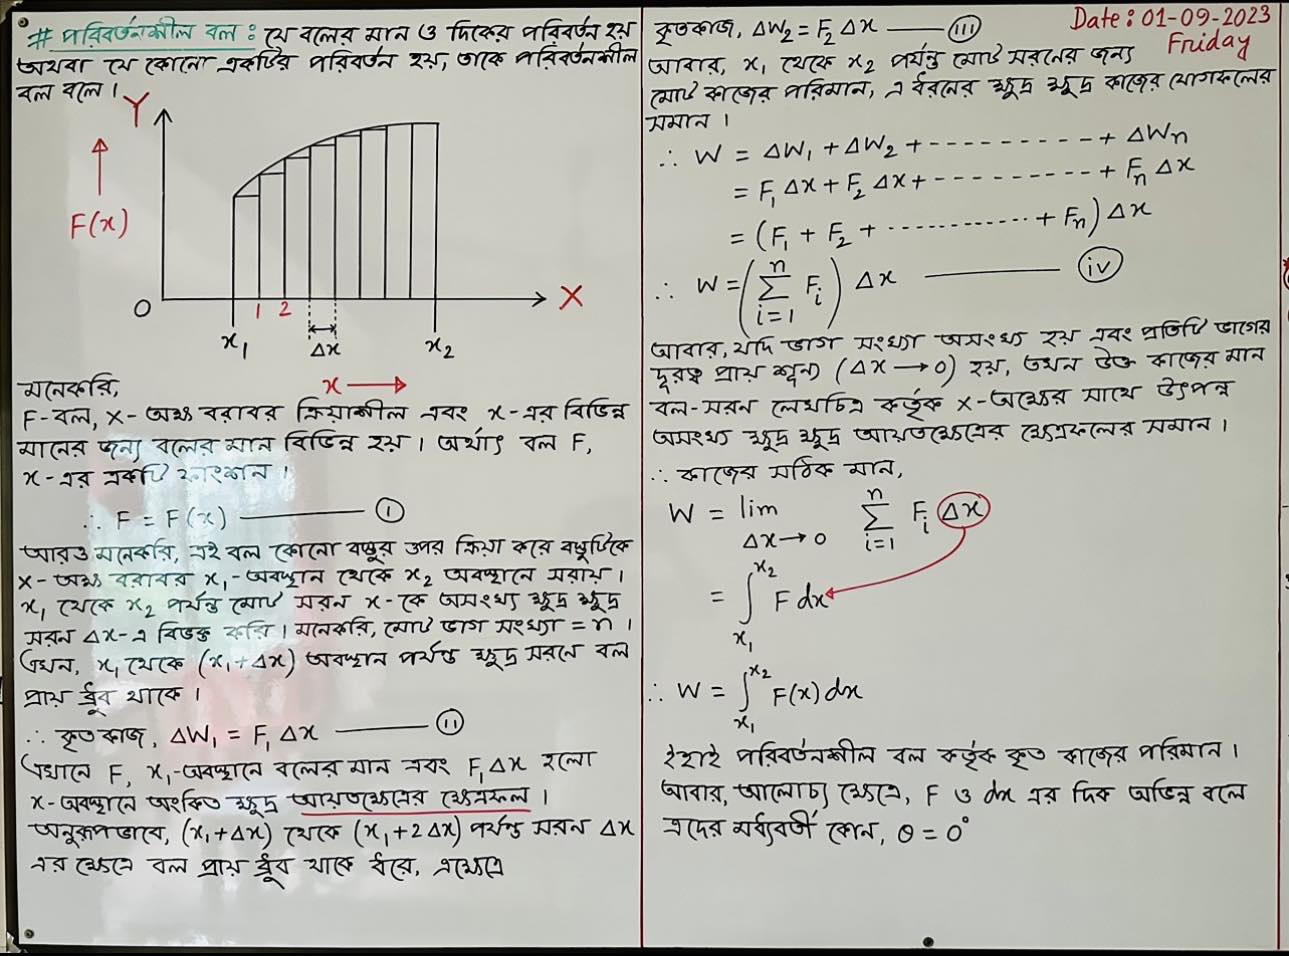 # পরিবর্তনশীল বল : যে বলের মান ও দিকের পরিবর্তন হয়
অথবা যে কোনো একটির পরিবর্তন হয়, তাকে পরিবর্তনশীল
বল বলে।
Y
F(x)
O
X
1 2
x₁
Δx
x₂
x
মনেকরি,
F-বল, X-অক্ষ বরাবর ক্রিয়াশীল এবং x-এর বিভিন্ন
মানের জন্য বলের মান বিভিন্ন হয়। অর্থাৎ বল F,
x-এর একটি ফাংশন।
∴ F = F(x) ——— (i)
আরও মনেকরি, এই বল কোনো বস্তুর উপর ক্রিয়া করে বস্তুটিকে
X-অক্ষ বরাবর x₁-অবস্থান থেকে x₂ অবস্থানে সরায়।
x₁ থেকে x₂ পর্যন্ত মোট সরন x-কে অসংখ্য ক্ষুদ্র ক্ষুদ্র
সরন Δx-এ বিভক্ত করি। মনেকরি, মোট ভাগ সংখ্যা = n।
এখন, x₁ থেকে (x₁+Δx) অবস্থান পর্যন্ত ক্ষুদ্র সরনে বল
প্রায় ধ্রুব থাকে।
∴ কৃতকাজ, ΔW₁ = F₁ Δx ——— (ii)
এখানে F₁ x₁-অবস্থানে বলের মান এবং F₁Δx হলো
x-অবস্থানে অংকিত ক্ষুদ্র আয়তক্ষেত্রের ক্ষেত্রফল।
অনুরূপভাবে, (x₁+Δx) থেকে (x₁+2Δx) পর্যন্ত সরন Δx
এর ক্ষেত্রে বল প্রায় ধ্রুব থাকে ধরে, এক্ষেত্রে
Date : 01-09-2023
Friday
কৃতকাজ, ΔW₂ = F₂ Δx ——— (iii)
আবার, x₁ থেকে x₂ পর্যন্ত মোট সরনের জন্য
মোট কাজের পরিমান, এ ধরনের ক্ষুদ্র ক্ষুদ্র কাজের যোগফলের
সমান।
∴ W = ΔW₁ + ΔW₂ + ---------- + ΔWn
= F₁ Δx + F₂ Δx + ---------- + Fn Δx
= (F₁ + F₂ + ------------ + Fn) Δx
∴ W = (∑ᵢ₌₁ⁿ Fᵢ) Δx ——— (iv)
আবার, যদি ভাগ সংখ্যা অসংখ্য হয় এবং প্রতিটি ভাগের
দূরত্ব প্রায় শূন্য (Δx → 0) হয়, তখন উক্ত কাজের মান
বল-সরন লেখচিত্র কর্তৃক X-অক্ষের সাথে উৎপন্ন
অসংখ্য ক্ষুদ্র ক্ষুদ্র আয়তক্ষেত্রের ক্ষেত্রফলের সমান।
∴ কাজের সঠিক মান,
W = lim Δx→0 ∑ᵢ₌₁ⁿ Fᵢ Δx
= ∫ₓ₁ˣ² F dx
∴ W = ∫ₓ₁ˣ² F(x) dx
ইহাই পরিবর্তনশীল বল কর্তৃক কৃত কাজের পরিমান।
আবার, আলোচ্য ক্ষেত্রে, F ও dx এর দিক অভিন্ন বলে
এদের মধ্যবর্তী কোন, θ = 0°